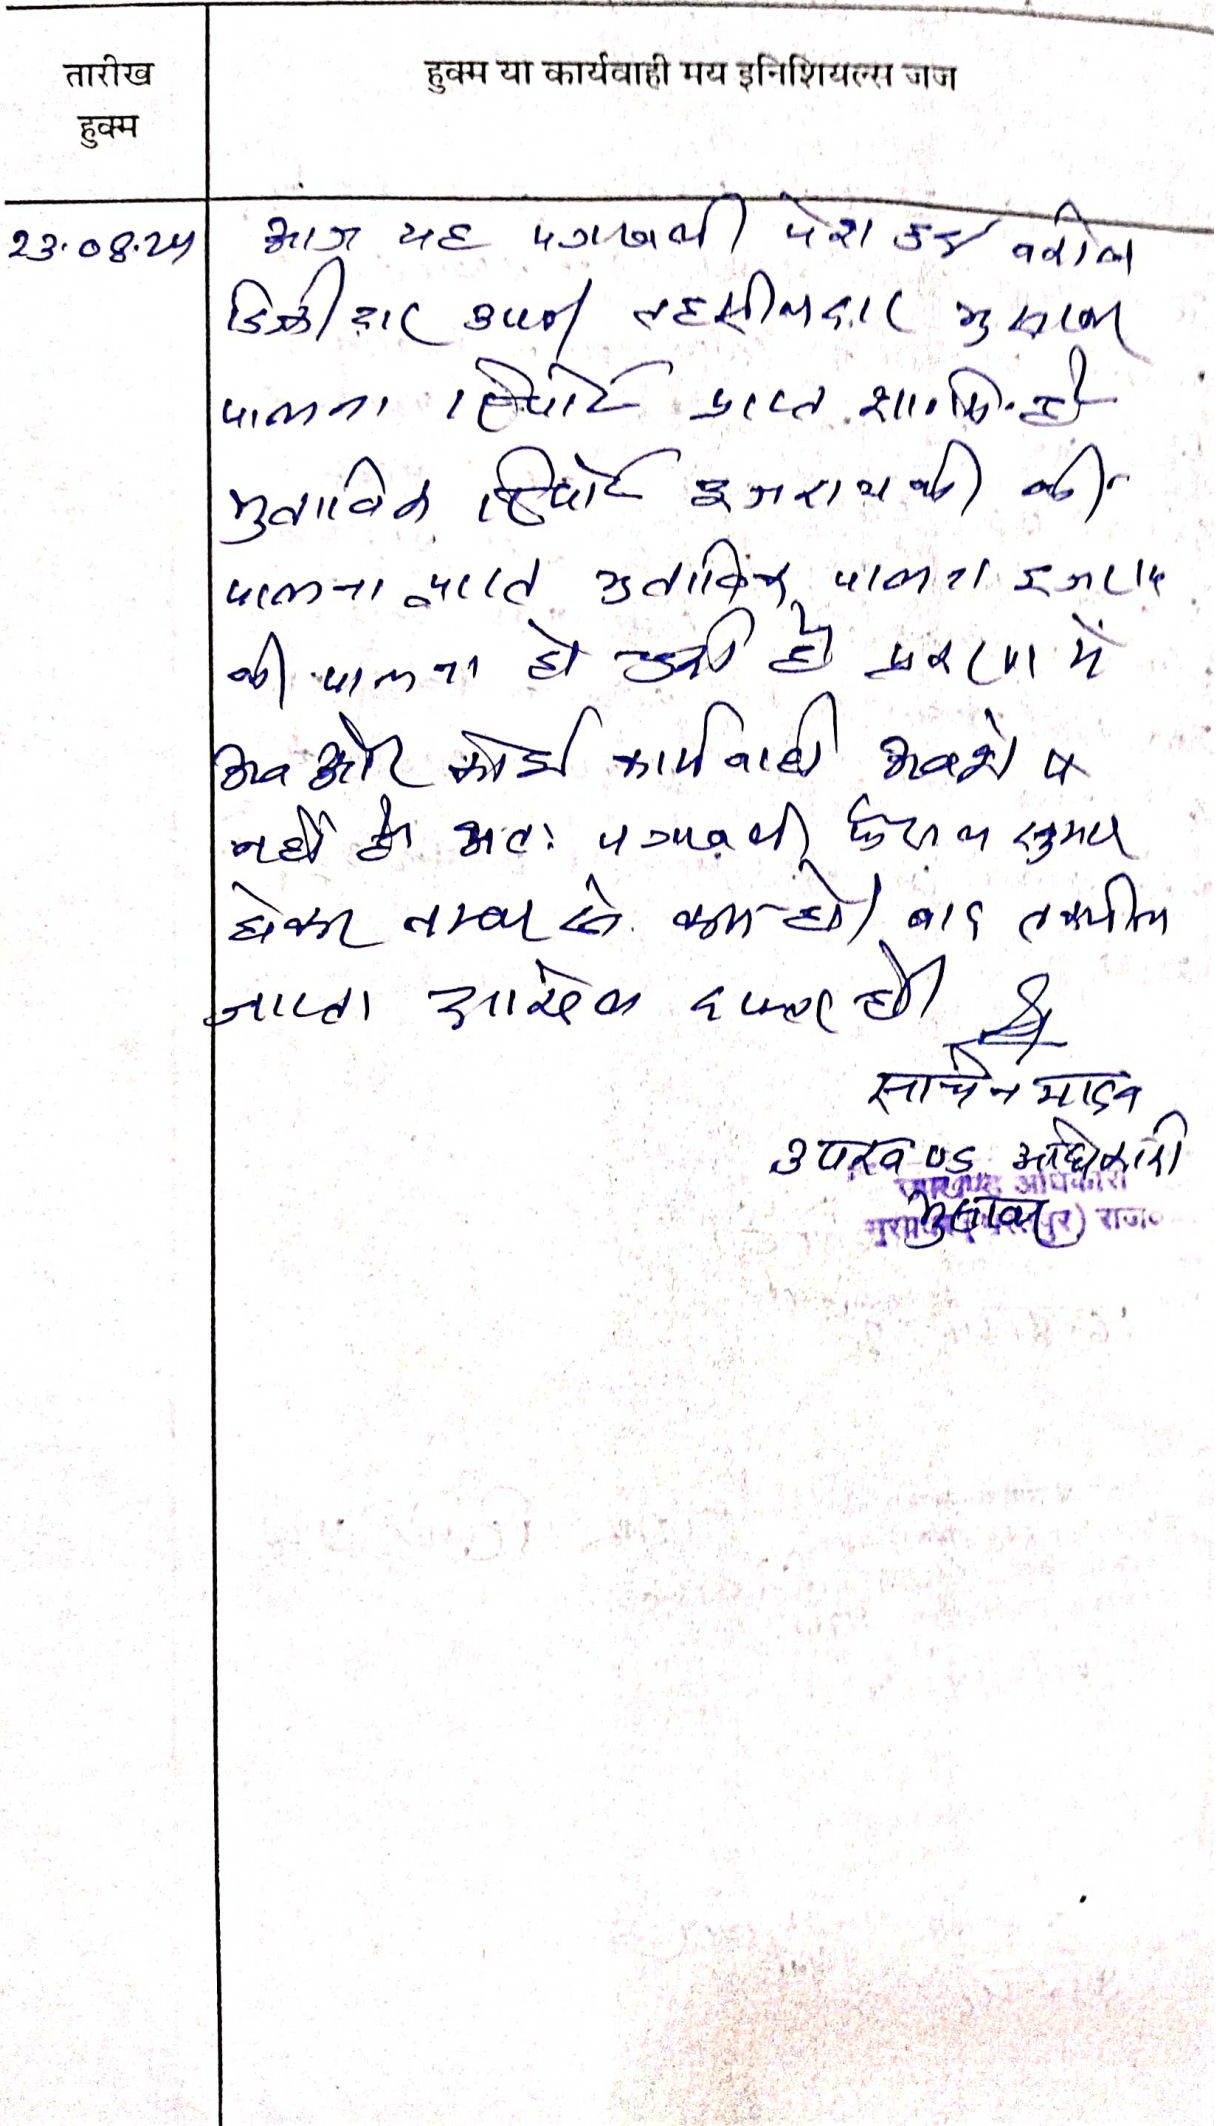 तारीख
हुक्म
हुक्म या कार्यवाही मय इनिशियल्स जज
23.08.24
आज यह पत्रावली पेश हुई वकील
डिक्रीदार उप० तहसीलदार भुसावर
पालना रिपोर्ट प्राप्त शा.मि. है
मुताबिक रिपोर्ट इजराय की
पालना प्राप्त मुताबिक पालना इजराय
की पालना हो चुकी है प्रकरण में
अब और कोई कार्यवाही अवशेष
नहीं है अतः पत्रावली फैसल शुमार
होकर नम्बर से कम हो। बाद तकमील
जाप्ता दाखिल दफ्तर हो।
सचिन यादव
उपखण्ड अधिकारी
भुसावर
उपखण्ड अधिकारी
राज०